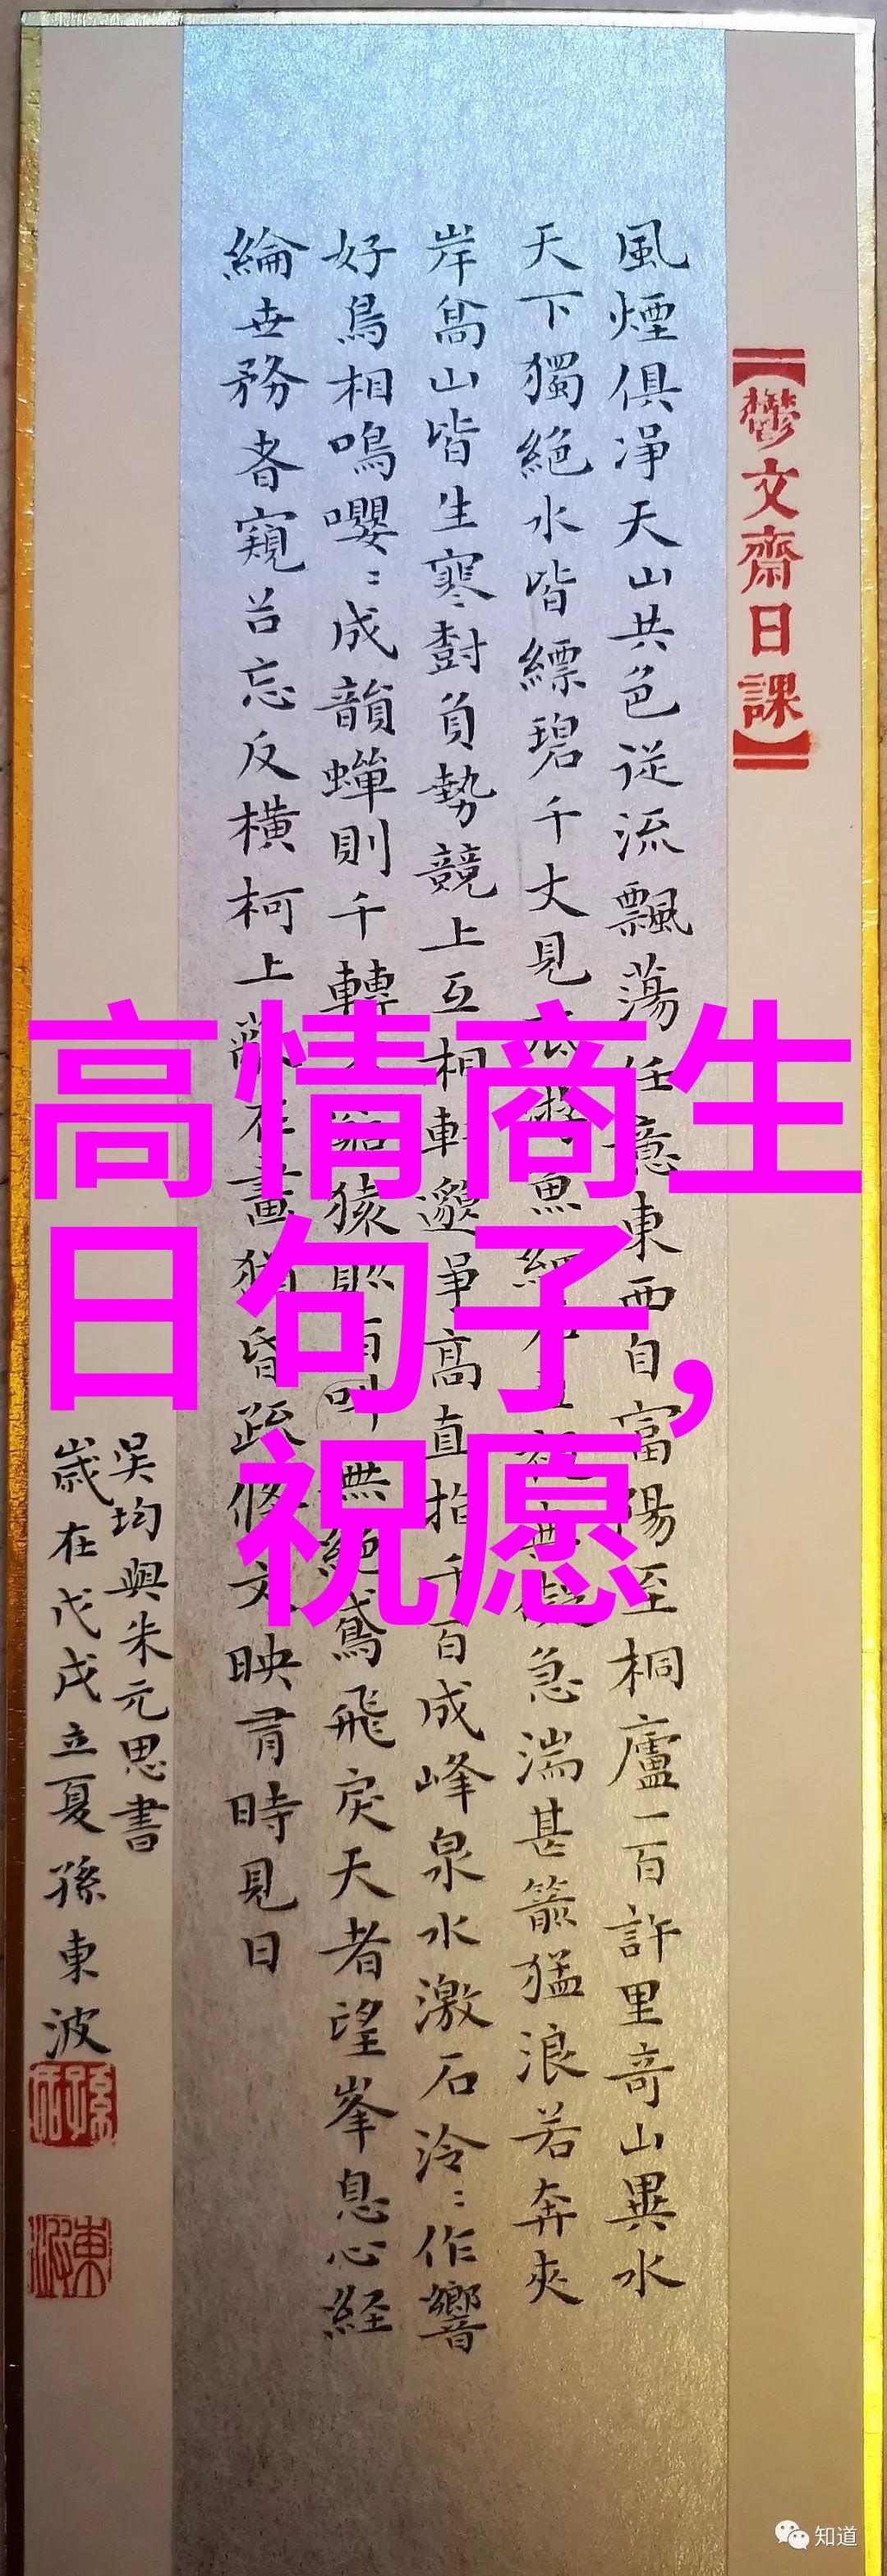 【鬱文齋日課】
風煙俱淨天山共色從流飄蕩任意東西自富陽至桐廬一百許里奇山異水
天下獨絕水皆縹碧千丈見底游魚細石直視無礙急湍甚箭猛浪若奔夾
岸高山皆生寒對負勢競上互相軒邈爭高直指千百成峰泉水激石泠〻作響
好鳥相鳴嚶〻成韻蟬則千轉不窮猿則百叫無絕鳶飛戾天者望峯息心経
綸世務者窺谷忘反橫柯上蔽在晝猶昏疏條交映有時見日
吳均與朱元思書
歲在戊戌立夏孫東波
高情商生
日句子，
祝愿
知道